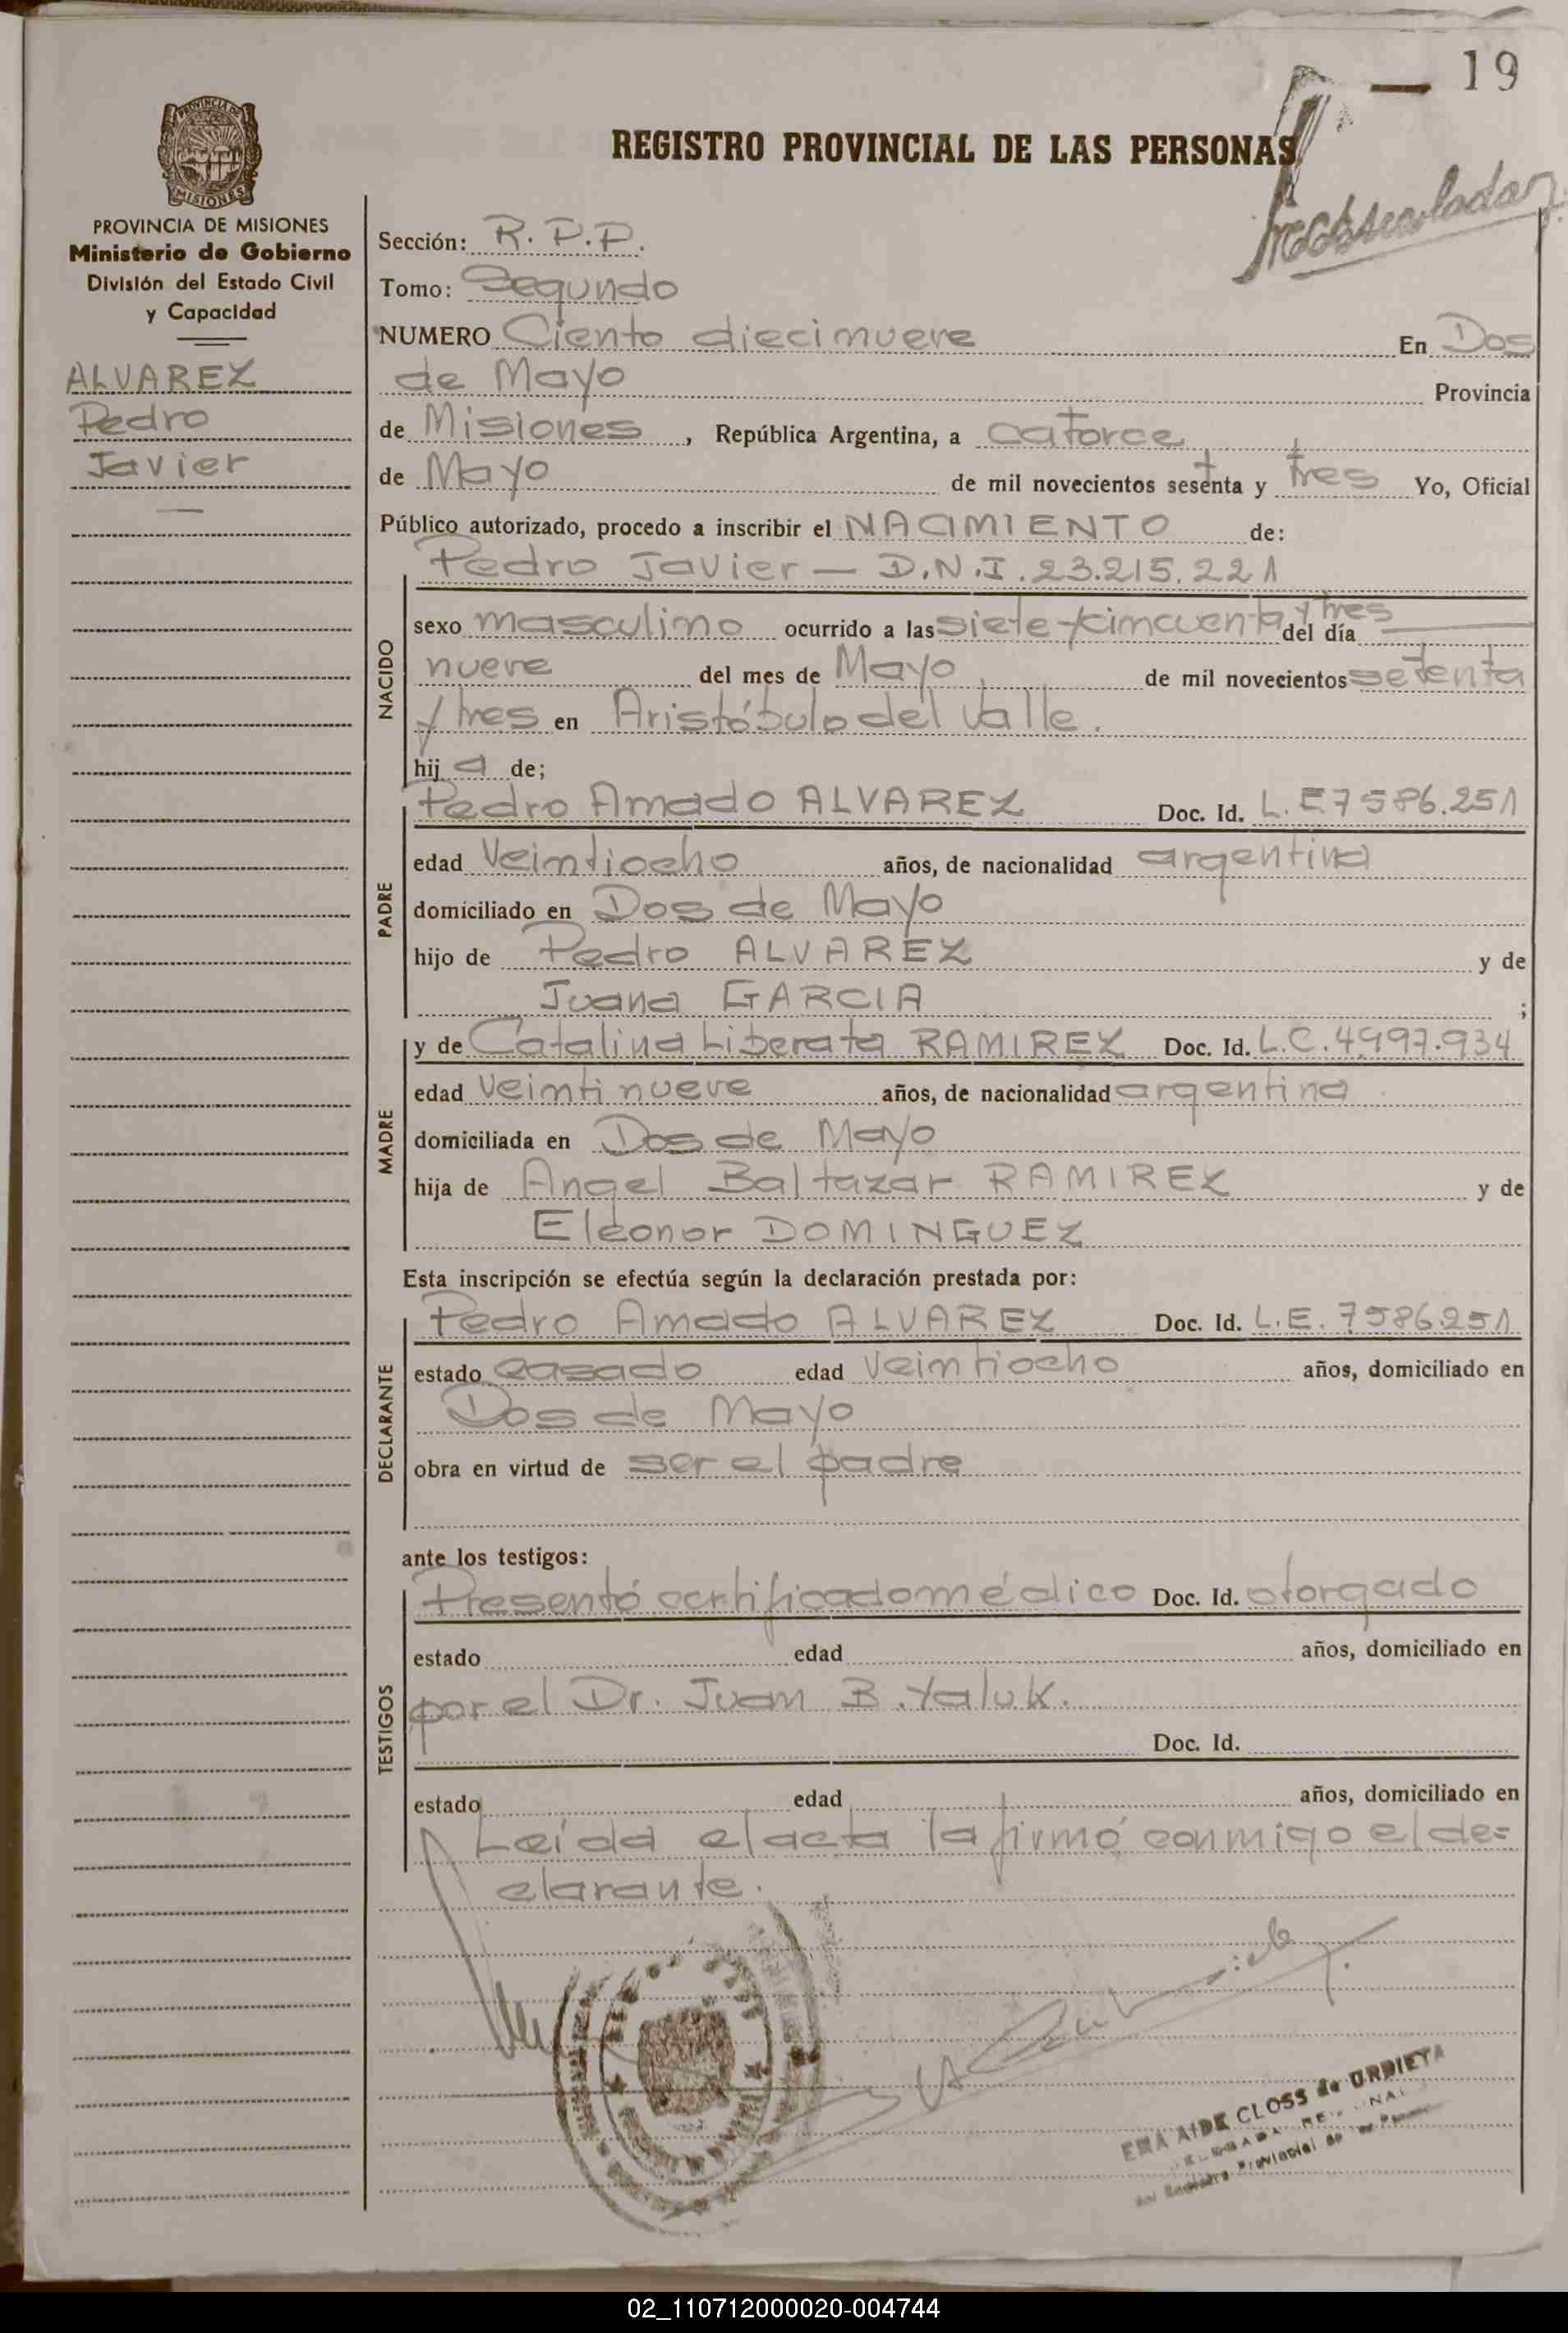 19
REGISTRO PROVINCIAL DE LAS PERSONAS
PROVINCIA DE MISIONES
Ministerio de Gobierno
División del Estado Civil
y Capacidad
ALVAREZ
Pedro
Javier
Sección: R.P.P.
Tomo: Segundo
NUMERO Ciento diecinueve En Dos
de Mayo Provincia
de Misiones, República Argentina, a catorce
de Mayo de mil novecientos setenta y tres Yo, Oficial
Público autorizado, procedo a inscribir el NACIMIENTO de:
Pedro Javier — D.N.I. 23.215.221
NACIDO
sexo masculino ocurrido a las siete y cincuenta y tres del día
nueve del mes de Mayo de mil novecientos setenta
y tres en Aristóbulo del Valle.
hij o de;
PADRE
Pedro Amado ALVAREZ Doc. Id. L.E 7586.251
edad Veintiocho años, de nacionalidad argentina
domiciliado en Dos de Mayo
hijo de Pedro ALVAREZ y de
Juana GARCIA ;
MADRE
y de Catalina Liberata RAMIREZ Doc. Id. L.C. 4.997.934
edad veintinueve años, de nacionalidad argentina
domiciliada en Dos de Mayo
hija de Angel Baltazar RAMIREZ y de
Eleonor DOMINGUEZ
Esta inscripción se efectúa según la declaración prestada por:
DECLARANTE
Pedro Amado ALVAREZ Doc. Id. L.E. 7586.251
estado casado edad veintiocho años, domiciliado en
Dos de Mayo
obra en virtud de ser el padre
ante los testigos:
TESTIGOS
Presentó certificado médico Doc. Id. otorgado
estado edad años, domiciliado en
por el Dr. Juan B. Yaluk.
Doc. Id.
estado edad años, domiciliado en
Leída el acta la firmó conmigo el de=
clarante.
EMA AIDE CLOSS de URDIETA
02_110712000020-004744